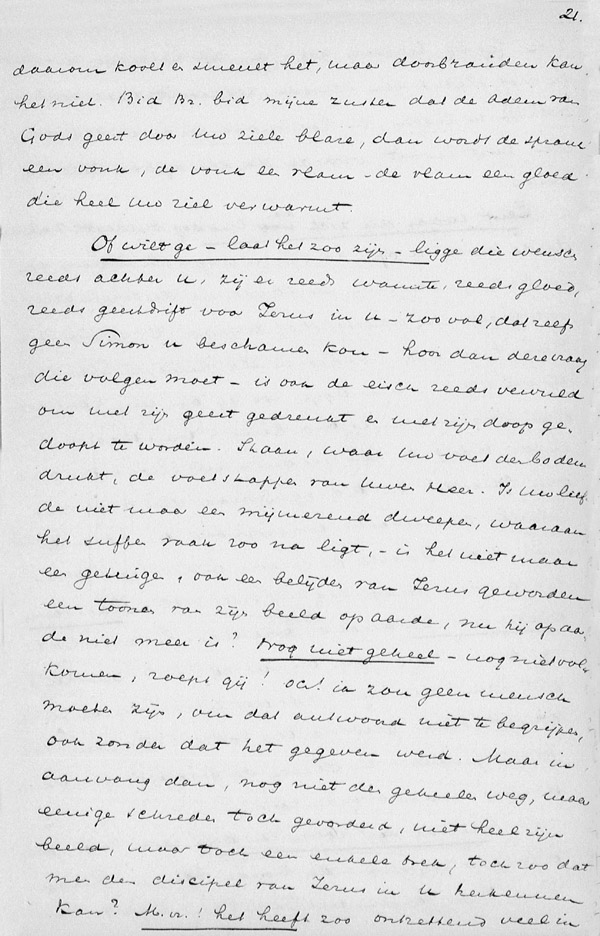 21.
daarom koolt en smeult het, maar doorbranden kan
het niet. Bid Br. bid mijne zuster dat de adem van
Gods geest door Uw ziele blaze, dan wordt de sprank
een vonk, de vonk een vlam - de vlam een gloed
die heel Uw ziel verwarmt.
Of wilt ge - laat het zoo zijn - ligge die wensch
reeds achter u, zij er reeds warmte, reeds gloed,
reeds geestdrift voor Jezus in u - zoo vol, dat zelfs
geen Simon u beschamen kan - hoor dan deze vraag
die volgen moet - is ook de eisch reeds vervuld
om met zijn geest gedrenkt en met zijn doop ge-
doopt te worden. Staan, waar Uw voet den bodem
drukt, de voetstappen van Uwen Heer. Is Uw lief
de niet maar een mijmerend dweepen, waaraan
het suffen vaak zoo na ligt, - is het niet maar
een getuigen, ook een belijden van Jezus geworden
een toonen van zijn beeld op aarde, nu hij op aar
de niet meer is? Nog niet geheel - nog niet vol-
komen, roept gij! och! ik zou geen mensch
moeten zijn, om dat antwoord niet te begrijpen,
ook zonder dat het gegeven werd. Maar in
aanvang dan, nog niet den geheelen weg, maar
eenige schreden toch gevorderd, niet heel zijn
beeld, maar toch een enkele trek, toch zoo dat
men den discipel van Jezus in u herkennen
kan? M. vr.! het heeft zoo ontzettend veel in